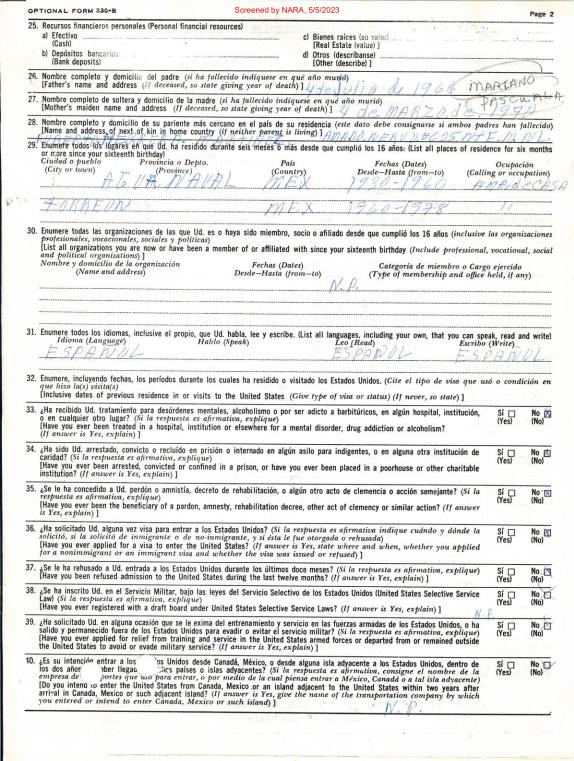 OPTIONAL FORM 230-B
Screened by NARA, 5/5/2023
Page 2
25. Recursos financieros personales (Personal financial resources)
a) Efectivo
(Cash)
c) Bienes raíces (su valor)
[Real Estate (value) ]
b) Depósitos bancarios
(Bank deposits)
d) Otros (descríbanse)
[Other (describe) ]
26. Nombre completo y domicilio del padre (si ha fallecido indíquese en qué año murió)
[Father's name and address (If deceased, so state giving year of death) ] 4 de Julio de 1960 MARIANO
27. Nombre completo de soltera y domicilio de la madre (si ha fallecido indíquese en qué año murió) PASCUALA
[Mother's maiden name and address (If deceased, so state giving year of death) ] 4 de MARZO de
28. Nombre completo y domicilio de su pariente más cercano en el país de su residencia (este dato debe consignarse si ambos padres han fallecido)
[Name and address of next of kin in home country (if neither parent is living) ]
29. Enumere todos los lugares en que Ud. ha residido durante seis meses o más desde que cumplió los 16 años: (List all places of residence for six months
or more since your sixteenth birthday)
Ciudad o pueblo Provincia o Depto. País Fechas (Dates) Ocupación
(City or town) (Province) (Country) Desde—Hasta (from—to) (Calling or occupation)
AGUANAVAL MEX 1930-1960 AMA de CASA
TORREON MEX 1960-1978 11
30. Enumere todas las organizaciones de las que Ud. es o haya sido miembro, socio o afiliado desde que cumplió los 16 años (inclusive las organizaciones
profesionales, vocacionales, sociales y políticas)
[List all organizations you are now or have been a member of or affiliated with since your sixteenth birthday (Include professional, vocational, social
and political organizations) ]
Nombre y domicilio de la organización Fechas (Dates) Categoría de miembro o Cargo ejercido
(Name and address) Desde—Hasta (from—to) (Type of membership and office held, if any)
N.P.
31. Enumere todos los idiomas, inclusive el propio, que Ud. habla, lee y escribe. (List all languages, including your own, that you can speak, read and write)
Idioma (Language) Hablo (Speak) Leo (Read) Escribo (Write)
ESPAÑOL ESPAÑOL ESPAÑOL
32. Enumere, incluyendo fechas, los períodos durante los cuales ha residido o visitado los Estados Unidos. (Cite el tipo de visa que usó o condición en
que hizo la(s) visita(s)
[Inclusive dates of previous residence in or visits to the United States (Give type of visa or status) (If never, so state) ]
33. ¿Ha recibido Ud. tratamiento para desórdenes mentales, alcoholismo o por ser adicto a barbitúricos, en algún hospital, institución,
o en cualquier otro lugar? (Si la respuesta es afirmativa, explique)
[Have you ever been treated in a hospital, institution or elsewhere for a mental disorder, drug addiction or alcoholism?
(If answer is Yes, explain) ]
Sí No
(Yes) (No)
34. ¿Ha sido Ud. arrestado, convicto o recluído en prisión o internado en algún asilo para indigentes, o en alguna otra institución de
caridad? (Si la respuesta es afirmativa, explique)
[Have you ever been arrested, convicted or confined in a prison, or have you ever been placed in a poorhouse or other charitable
institution? (If answer is Yes, explain) ]
Sí No
(Yes) (No)
35. ¿Se le ha concedido a Ud. perdón o amnistía, decreto de rehabilitación, o algún otro acto de clemencia o acción semejante? (Si la
respuesta es afirmativa, explique)
[Have you ever been the beneficiary of a pardon, amnesty, rehabilitation decree, other act of clemency or similar action? (If answer
is Yes, explain) ]
Sí No
(Yes) (No)
36. ¿Ha solicitado Ud. alguna vez visa para entrar a los Estados Unidos? (Si la respuesta es afirmativa indique cuándo y dónde la
solicitó, si la solicitó de inmigrante o de no-inmigrante, y si ésta le fue otorgada o rehusada)
[Have you ever applied for a visa to enter the United States? (If answer is Yes, state where and when, whether you applied
for a nonimmigrant or an immigrant visa and whether the visa was issued or refused) ]
Sí No
(Yes) (No)
37. ¿Se le ha rehusado a Ud. entrada a los Estados Unidos durante los últimos doce meses? (Si la respuesta es afirmativa, explique)
[Have you been refused admission to the United States during the last twelve months? (If answer is Yes, explain) ]
Sí No
(Yes) (No)
38. ¿Se ha inscrito Ud. en el Servicio Militar, bajo las leyes del Servicio Selectivo de los Estados Unidos (United States Selective Service
Law) (Si la respuesta es afirmativa, explique)
[Have you ever registered with a draft board under United States Selective Service Laws? (If answer is Yes, explain) ]
Sí No
(Yes) (No)
N.P.
39. ¿Ha solicitado Ud. en alguna ocasión que se le exima del entrenamiento y servicio en las fuerzas armadas de los Estados Unidos, o ha
salido y permanecido fuera de los Estados Unidos para evadir o evitar el servicio militar? (Si la respuesta es afirmativa, explique)
[Have you ever applied for relief from training and service in the United States armed forces or departed from or remained outside
the United States to avoid or evade military service? (If answer is Yes, explain) ]
Sí No
(Yes) (No)
40. ¿Es su intención entrar a los os Unidos desde Canadá, México, o desde alguna isla adyacente a los Estados Unidos, dentro de
los dos años ber llegado países o islas adyacentes? (Si la respuesta es afirmativa, consigne el nombre de la
empresa de portes que usó para entrar, o por medio de la cual piensa entrar a México, Canadá o a tal isla adyacente)
[Do you intend to enter the United States from Canada, Mexico or an island adjacent to the United States within two years after
arrival in Canada, Mexico or such adjacent island? (If answer is Yes, give the name of the transportation company by which
you entered or intend to enter Canada, Mexico or such island) ]
Sí No
(Yes) (No)
N.P.